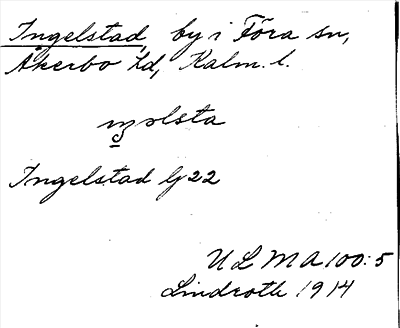 Ingelstad, by i Föra sn,
Åkerbo hd, Kalm. l.
Ingelstad Gj 22
ULMA 100:5
Lindroth 1914